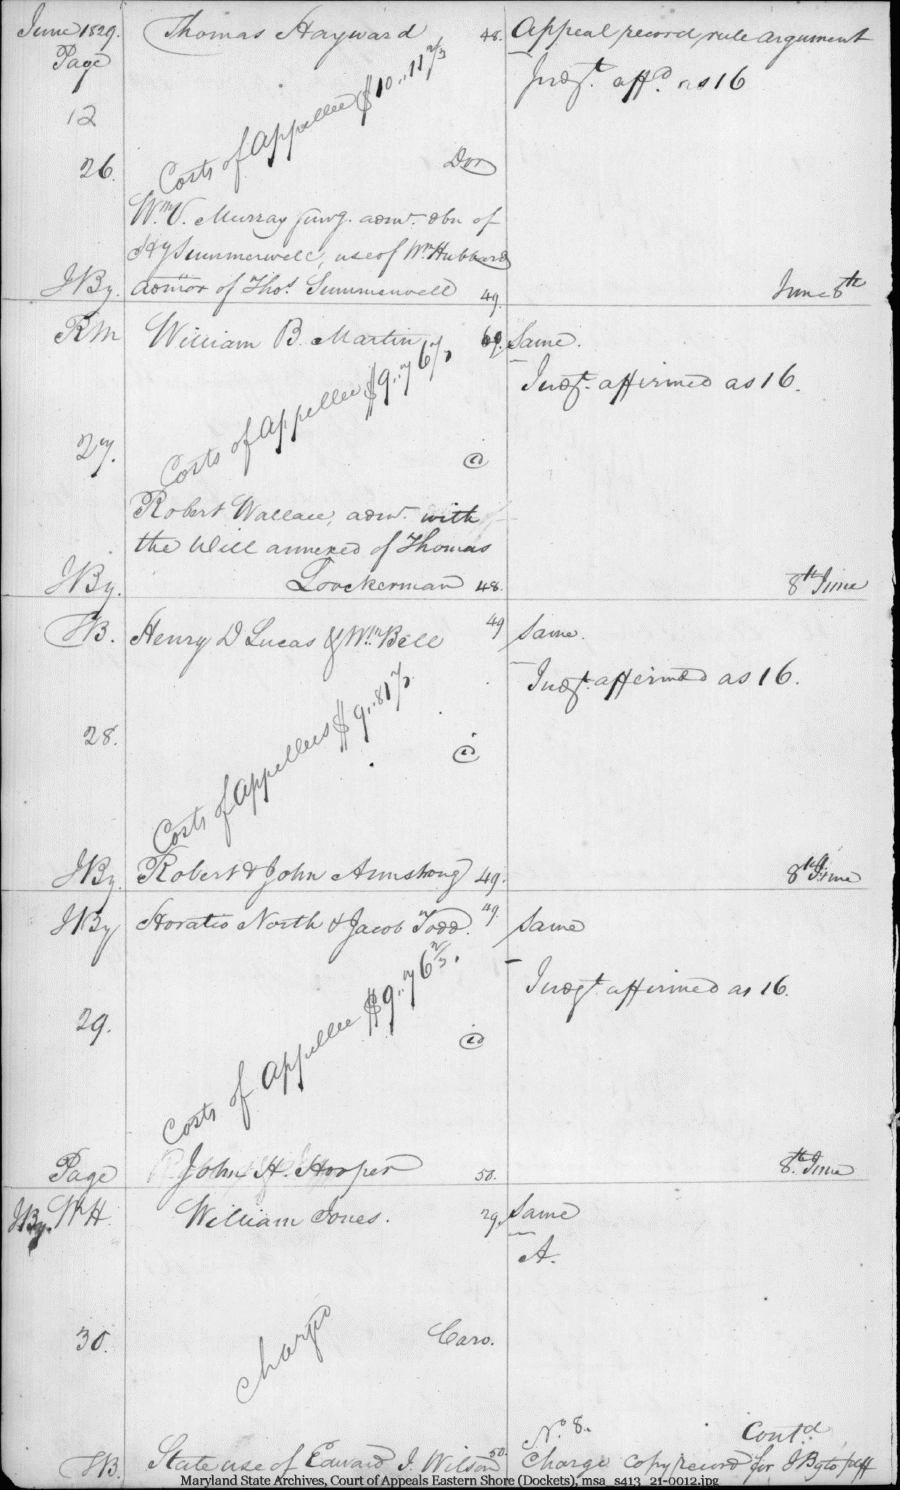 June 1829. Thomas Hayward 48. Appeal, record, rule argument
Page Judgt. affd. as 16
12
Costs of Appellee $10..11 2/3
26. Dor
Wm. V. Murray surg. admr. dbn of
Hy Summerwell, use of Wm Hubbard
JBy. admor of Thos. Summerwell 49. June 8th
RM William B. Martin 69. Same.
Judgt. affirmed as 16.
Costs of Appellee $9..76 2/3
27. @
Robert Wallace, admr. with
the Will annexed of Thomas
JBy. Loockerman 48. 8th June
JB. Henry D Lucas & Wm. Bell 49 Same.
Judgt. affirmed as 16.
Costs of Appellees $9..81 2/3
28. @
JBy. Robert & John Armstrong 49. 8th June
JBy Horatio North & Jacob Todd. 49. Same
Judgt. affirmed as 16.
Costs of Appellee $9..76 2/3.
29. @
Page John H. Hooper 50. 8th. June
JBy. WH. William Jones. 29. Same
A.
Charge
30. Caro.
No. 8. Contd
JB. State use of Edward J. Wilson 50. Charge copy record for JBy to pff
Maryland State Archives, Court of Appeals Eastern Shore (Dockets), msa_s413_21-0012.jpg